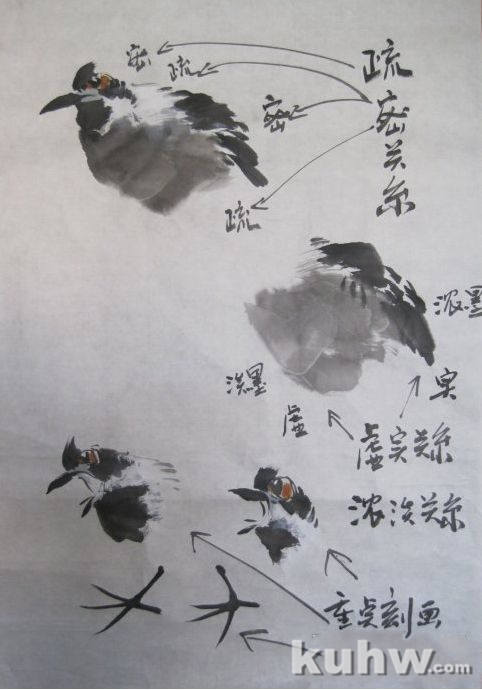 密
疏
疏密关系
密
疏
浓墨
淡墨
实
虚
虚实关系
浓淡关系
重点刻画
kuhw.com